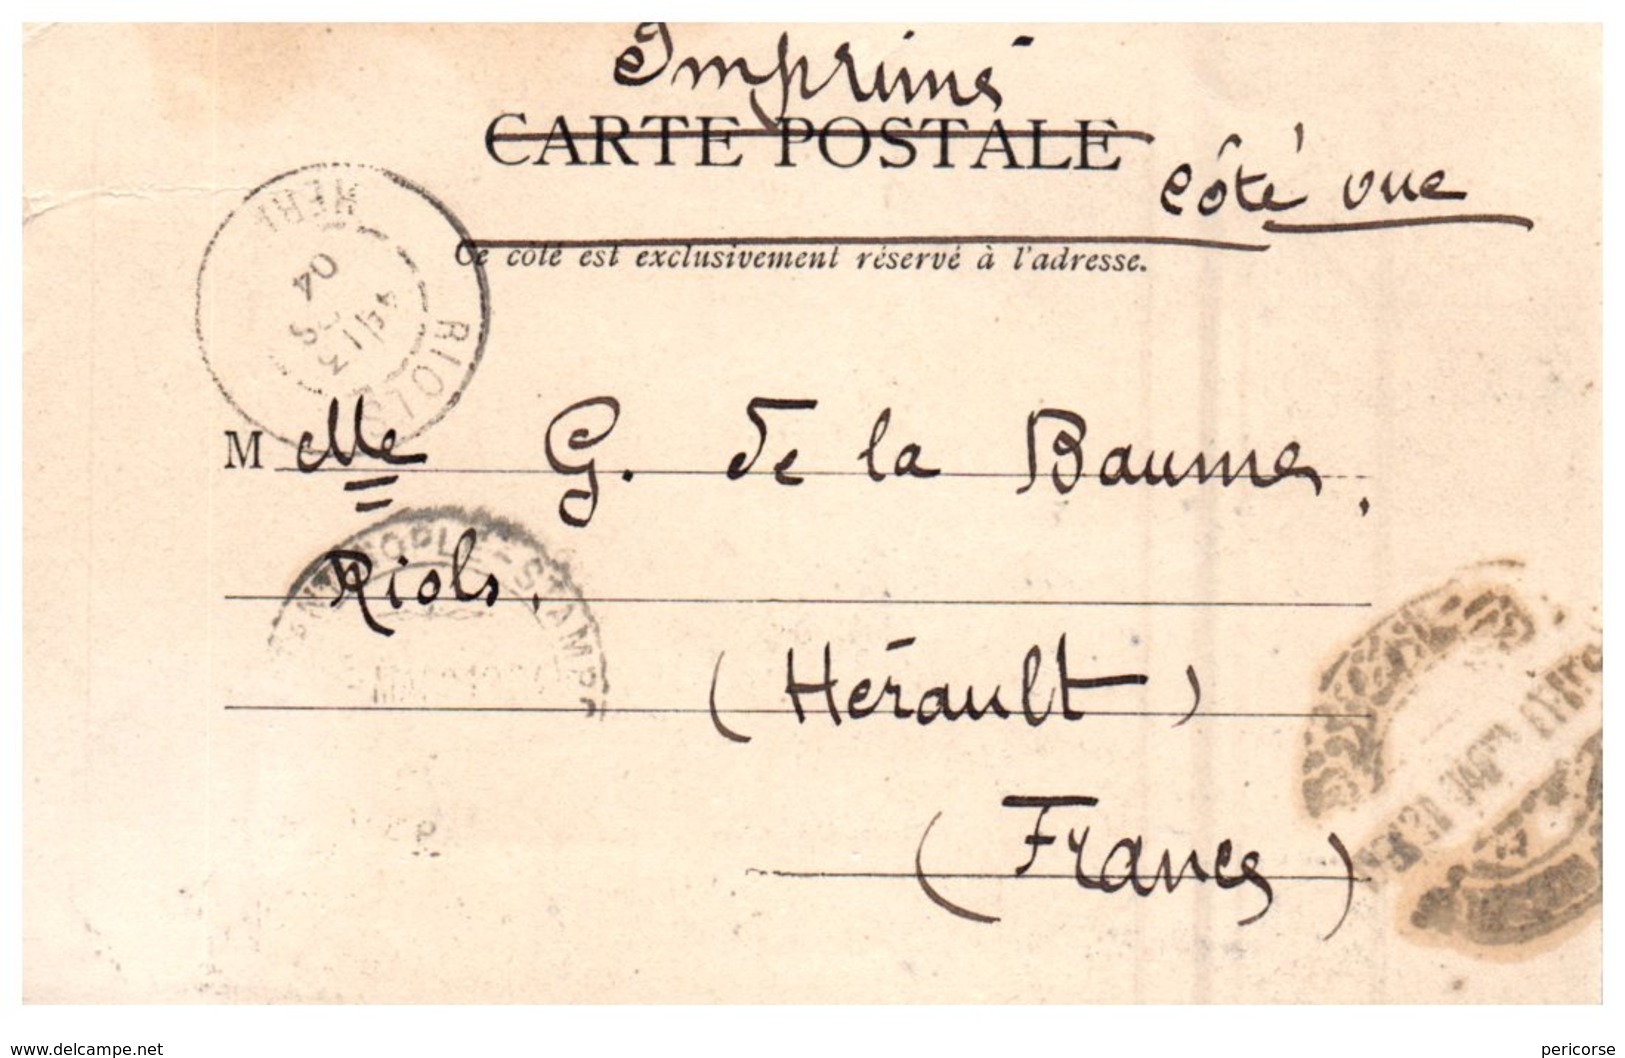 Imprimé
CARTE POSTALE
côté vue
Ce côté est exclusivement réservé à l'adresse.
RIOLS
HER
04
M elle G. de la Baume,
Riols.
(Hérault)
(France)
www.delcampe.net
pericorse